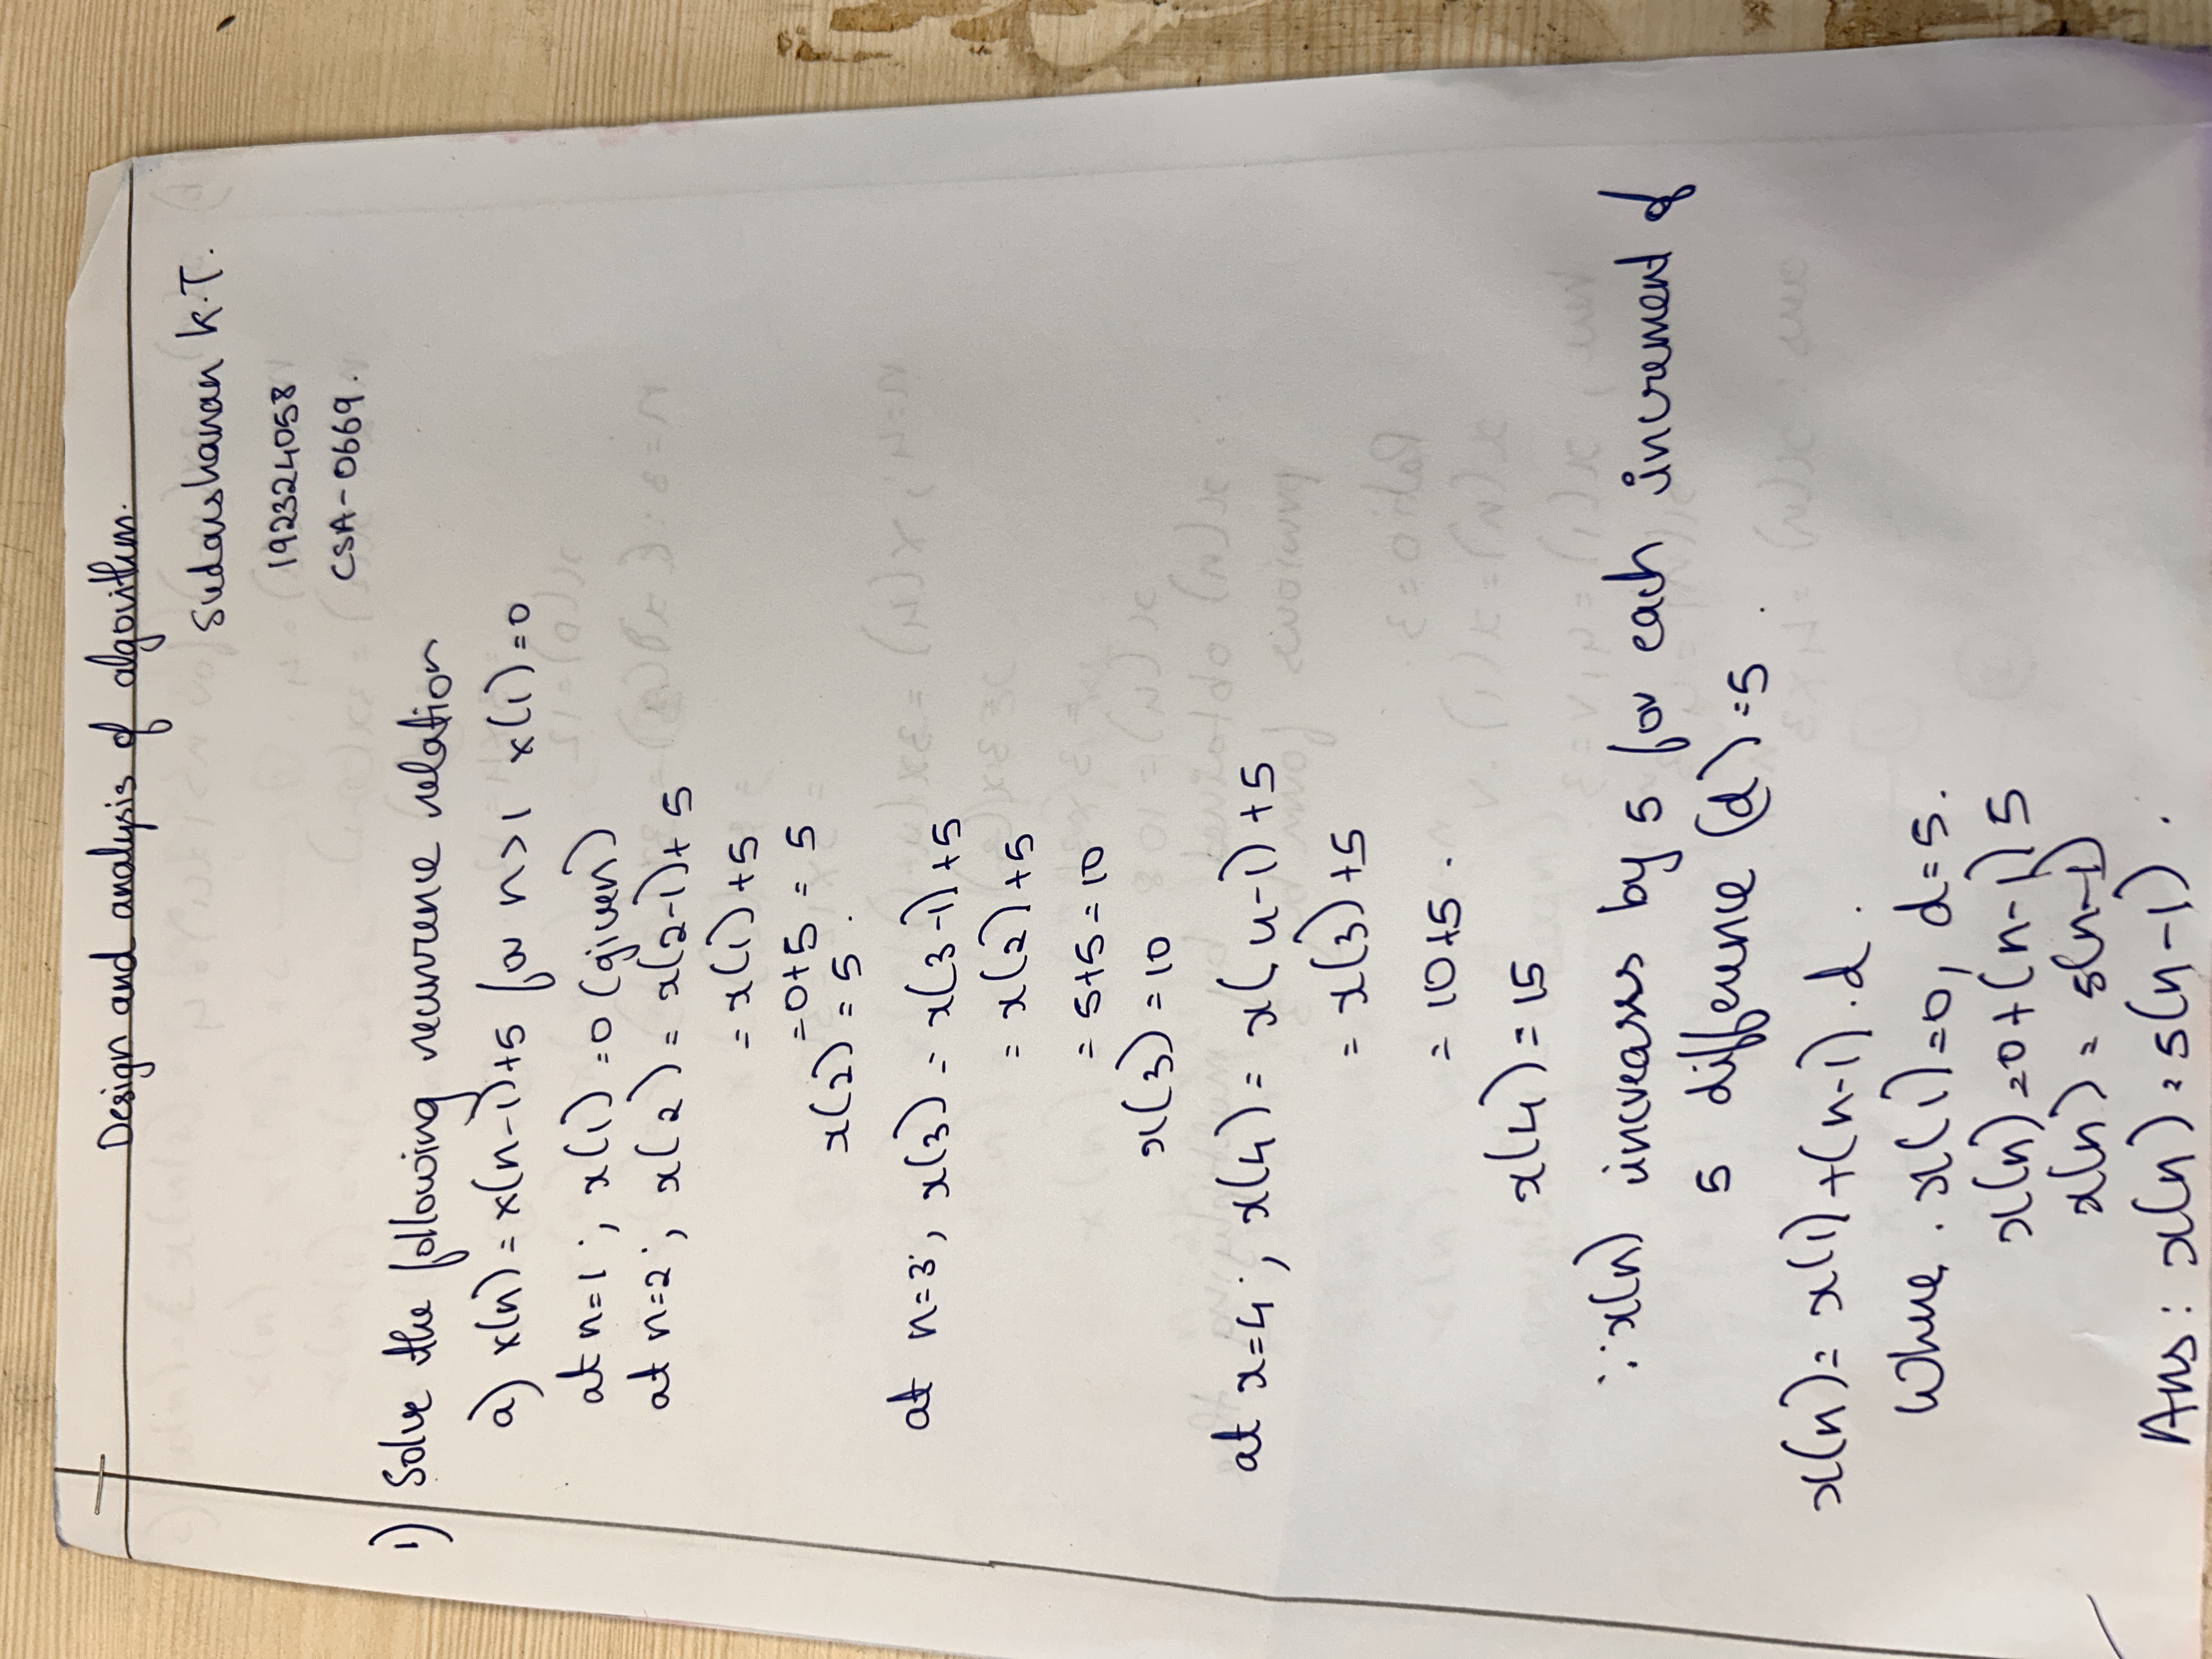 Design and analysis of algorithm.
Sudarshanan K.T.
192324058
CSA-0669.
1) Solve the following recurrence relation
a) x(n) = x(n-1)+5 for n>1 x(1)=0
at n=1; x(1)=0 (given)
at n=2; x(2) = x(2-1)+5
= x(1)+5
=0+5 = 5
x(2) = 5.
at n=3; x(3) = x(3-1)+5
= x(2)+5
= 5+5=10
x(3)=10
at x=4; x(4) = x(4-1)+5
= x(3)+5
= 10+5.
x(4)=15
∵x(n) increases by 5 for each increment of
5 difference (d)=5.
x(n)= x(1)+(n-1).d.
Where. x(1)=0, d=5.
x(n)=0+(n-1)5
x(n) = 5(n-1)
Ans: x(n)=5(n-1).